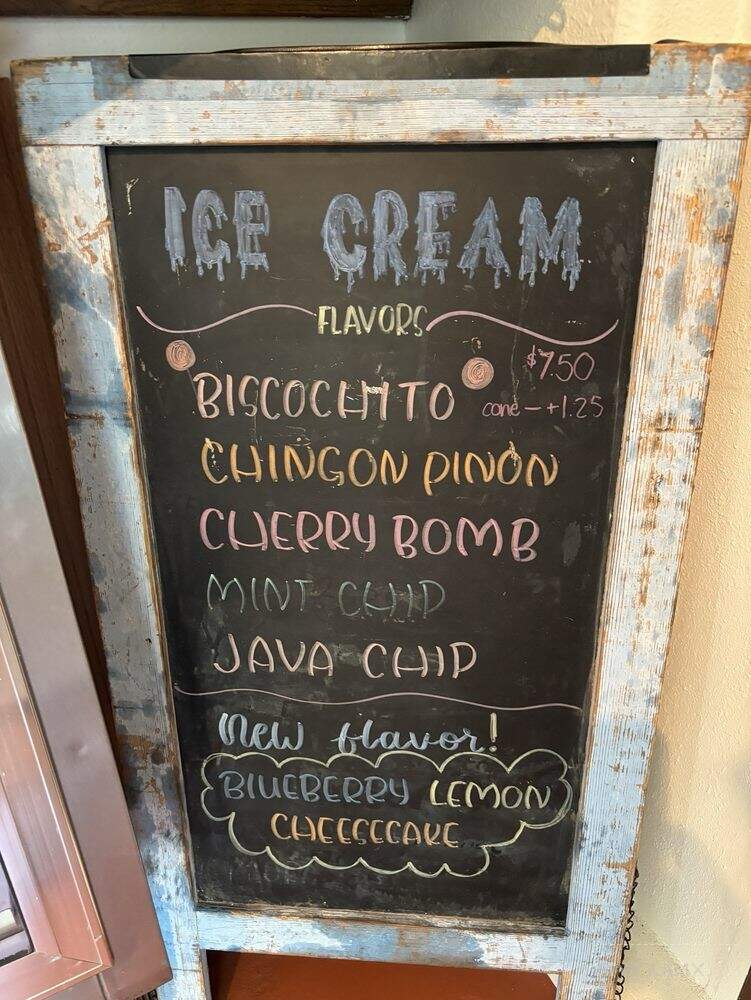 ICE CREAM
FLAVORS
$7.50
BISCOCHITO
cone - +1.25
CHINGON PIÑON
CHERRY BOMB
MINT CHIP
JAVA CHIP
New flavor!
BLUEBERRY LEMON
CHEESECAKE